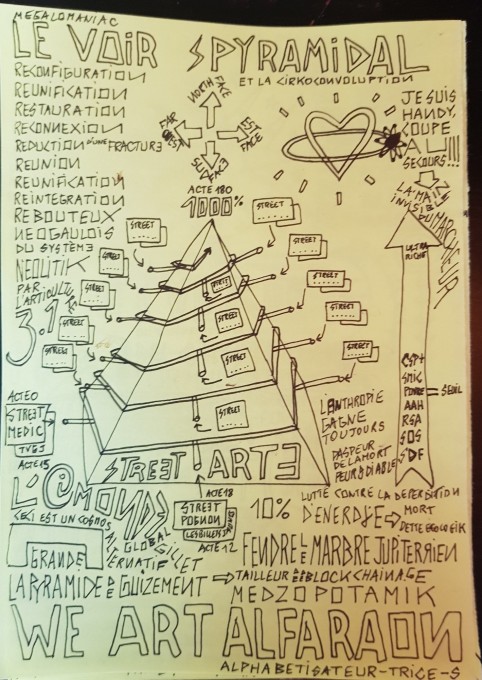 MEGALOMANIAC
LE VOIR SPYRAMIDAL
ET LA CIRKOCONVOLUPTION
RECONFIGURATION
REUNIFICATION
RESTAURATION
RECONNEXION
REDUCTION D'UNE FRACTURE
REUNION
REUNIFICATION
REINTEGRATION
REBOUTEUX
NEOGAULOIS
DU SYSTÈME
NEOLITIK
PAR
3.1
NORTH FACE
FAR
EST FACE
FACE
JE SUIS
HANDY,
COUPE
AU
SECOURS!!!
LA MAIN
INVISIBLE
DU MARCHE
ACTE 180
1000%
STREET
STREET
STREET
STREET
STREET
STREET
STREET
STREET
STREET
STREET
ARTE
STREET
STREET
STREET
STREET
ULTRA
RICHE
CSP+
SMIC
PAUVRE = SEUIL
AAH
RSA
SOS
SDF
ACTE 0
STREET
MEDIC
ACTE 15
L'ENTHROPIE
GAGNE
TOUJOURS
PAS PEUR
DE LA MORT
PEUR DU DIABLE
STREET ARTE
L'@MONDE
CECI EST UN COSMOS
ACTE 18
STREET
POGNON
ACTE 12
GLOBAL
GILLET
10%
LUTTE CONTRE LA DEPERDITION
D'ENERGYE
MORT
DETTE ECOLOGIK
GRANDE
LA PYRAMIDE DE GUIZEMENT
FENDRE LE MARBRE JUPITERRIEN
TAILLEUR DE BLOCKCHAINAGE
MEDZOPOTAMIK
WE ART ALFARAON
ALPHABETISATEUR-TRICE-S